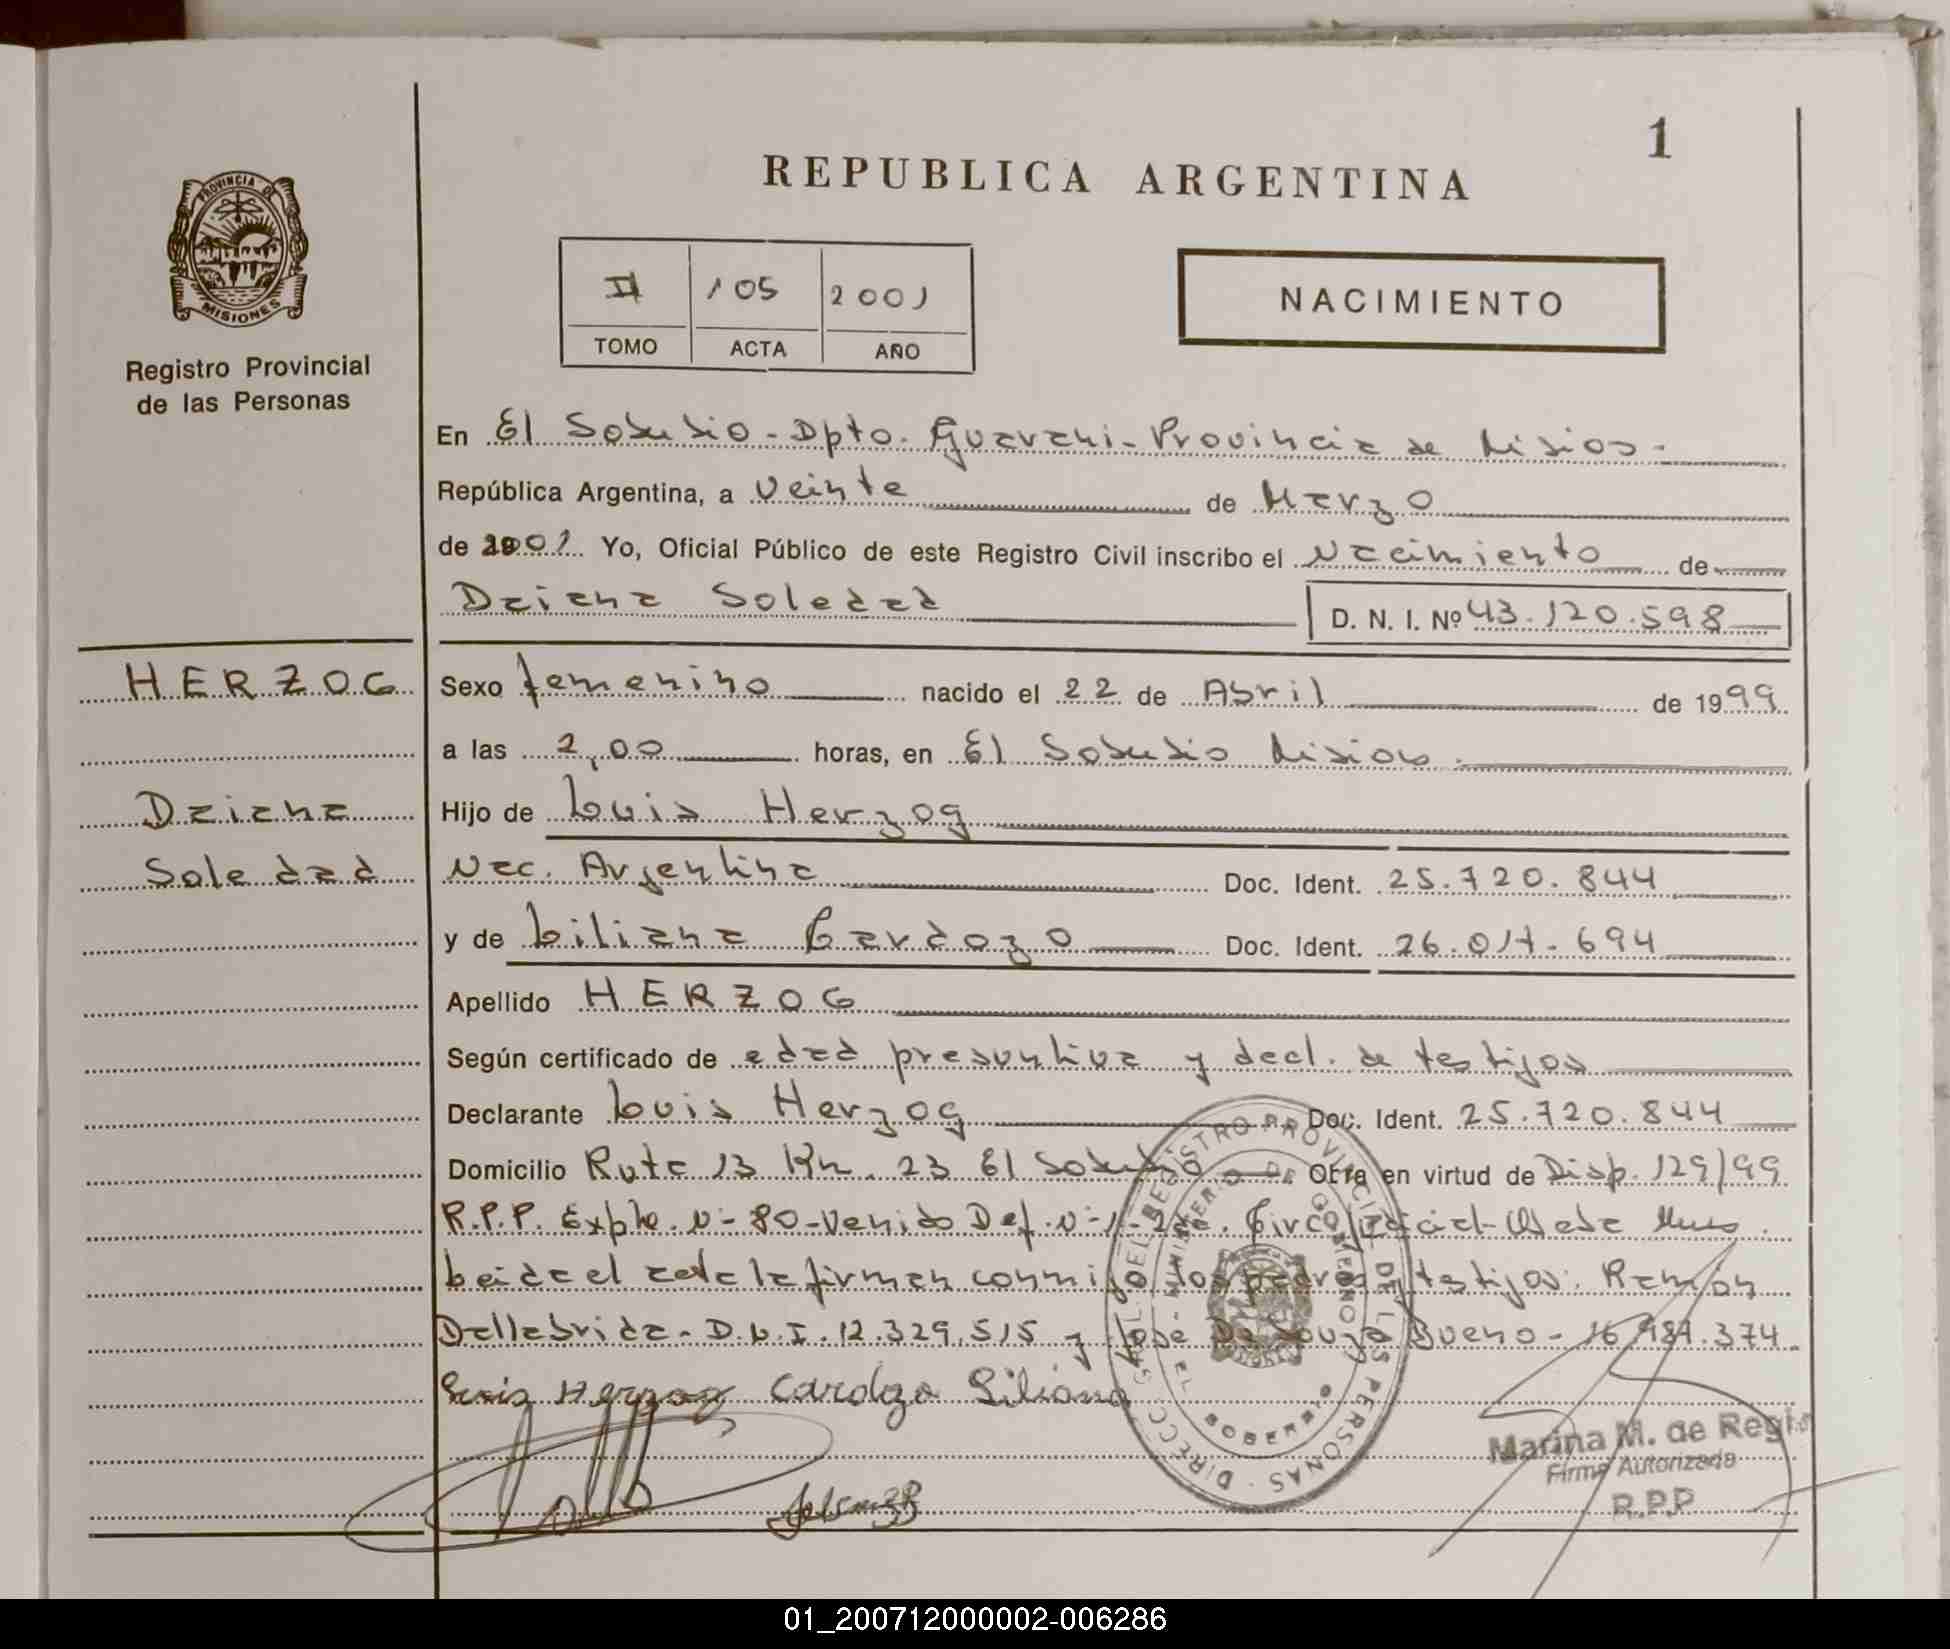 1
REPUBLICA ARGENTINA
PROVINCIA DE
MISIONES
Registro Provincial
de las Personas
II 105 2001
TOMO ACTA AÑO
NACIMIENTO
En El Soberbio - Dpto. Guarani - Provincia de Misios.
República Argentina, a Veinte de Marzo
de 2001 Yo, Oficial Público de este Registro Civil inscribo el Nacimiento de
Daiana Soledad D. N. I. Nº 43.120.598
HERZOG
Sexo femenino nacido el 22 de Abril de 1999
a las 2,00 horas, en El Soberbio Misios.
Daiana
Hijo de Luis Herzog
Soledad
Nac. Argentina Doc. Ident. 25.720.844
y de Liliana Cardozo Doc. Ident. 26.017.694
Apellido HERZOG
Según certificado de edad presuntiva y decl. de testigos
Declarante Luis Herzog Doc. Ident. 25.720.844
Domicilio Ruta 13 Km. 23 El Soberbio Otra en virtud de Disp. 129/99
R.P.P. Expte. Nº 80-Venido Def. Nº 1-2da. Circ. Judicial-
Leida el acta la firman conmigo los padres testigos: Ramón
Dallabrida - D.N.I. 12.329.515 y José De Souza Bueno - 16.987.374
Luis Herzog Cardozo Liliana
DIRECC. GRAL. DEL REGISTRO PROVINCIAL DE LAS PERSONAS
MINISTERIO DE GOBIERNO
EL SOBERBIO
Marina M. de Regis
Firma Autorizada
R.P.P
01_200712000002-006286